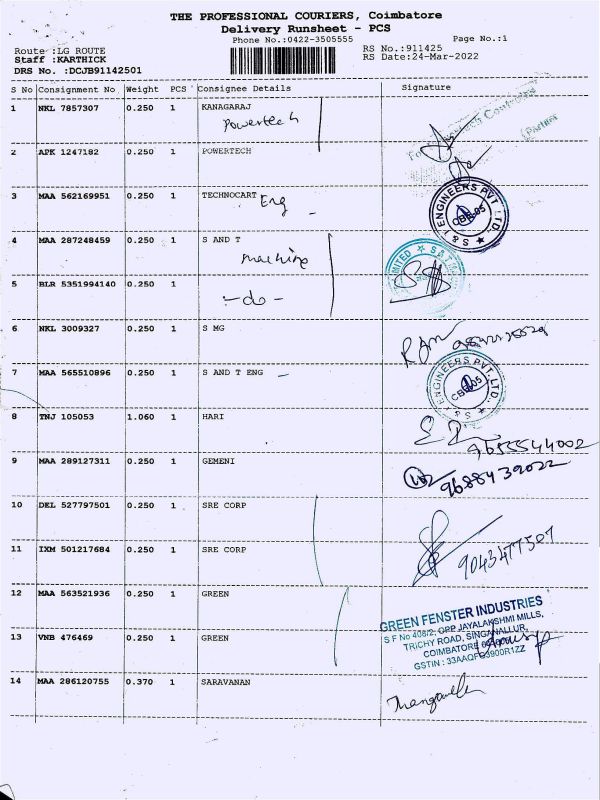 THE PROFESSIONAL COURIERS, Coimbatore
Delivery Runsheet - PCS
Phone No.:0422-3505555
Page No.:1
Route :LG ROUTE
RS No.:911425
Staff :KARTHICK
RS Date:24-Mar-2022
DRS No. :DCJB91142501
S No Consignment No Weight PCS Consignee Details Signature
1 NKL 7857307 0.250 1 KANAGARAJ
Powertech
2 APK 1247182 0.250 1 POWERTECH
3 MAA 562169951 0.250 1 TECHNOCART Eng
S & T ENGINEERS PVT. LTD. CBE-05
4 MAA 287248459 0.250 1 S AND T
machine
5 BLR 5351994140 0.250 1
-do-
6 NKL 3009327 0.250 1 S MG
7 MAA 565510896 0.250 1 S AND T ENG
S & T ENGINEERS PVT. LTD. CBE-05
8 TNJ 105053 1.060 1 HARI
9655544002
9 MAA 289127311 0.250 1 GEMENI
9688439022
10 DEL 527797501 0.250 1 SRE CORP
11 IXM 501217684 0.250 1 SRE CORP
9043477507
12 MAA 563521936 0.250 1 GREEN
GREEN FENSTER INDUSTRIES
S F No 408/2, OPP JAYALAKSHMI MILLS,
13 VNB 476469 0.250 1 GREEN
TRICHY ROAD, SINGANALLUR,
COIMBATORE
GSTIN :
14 MAA 286120755 0.370 1 SARAVANAN